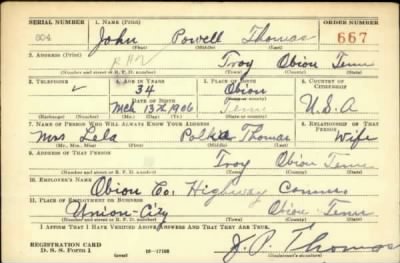 SERIAL NUMBER 1. NAME (Print) ORDER NUMBER
304 John Powell Thomas 667
(First) (Middle) (Last)
2. ADDRESS (Print)
R #2 Troy Obion Tenn
(Number and street or R. F. D. number) (Town) (County) (State)
3. TELEPHONE 4. AGE IN YEARS 5. PLACE OF BIRTH 6. COUNTRY OF CITIZENSHIP
34 Obion
DATE OF BIRTH (Town or county)
Mch 13th 1906 Tenn U.S.A
(Exchange) (Number) (Mo.) (Day) (Yr.) (State or country)
7. NAME OF PERSON WHO WILL ALWAYS KNOW YOUR ADDRESS 8. RELATIONSHIP OF THAT PERSON
Mrs Lela Polka Thomas Wife
(Mr., Mrs., Miss) (First) (Middle) (Last)
9. ADDRESS OF THAT PERSON
Troy Obion Tenn
(Number and street or R. F. D. number) (Town) (County) (State)
10. EMPLOYER'S NAME
Obion Co. Highway Comm
11. PLACE OF EMPLOYMENT OR BUSINESS
Union-City Obion Tenn
(Number and street or R. F. D. number) (Town) (County) (State)
I AFFIRM THAT I HAVE VERIFIED ABOVE ANSWERS AND THAT THEY ARE TRUE.
REGISTRATION CARD
D. S. S. Form 1 (over) 16-17105 J. P. Thomas
(Registrant's signature)